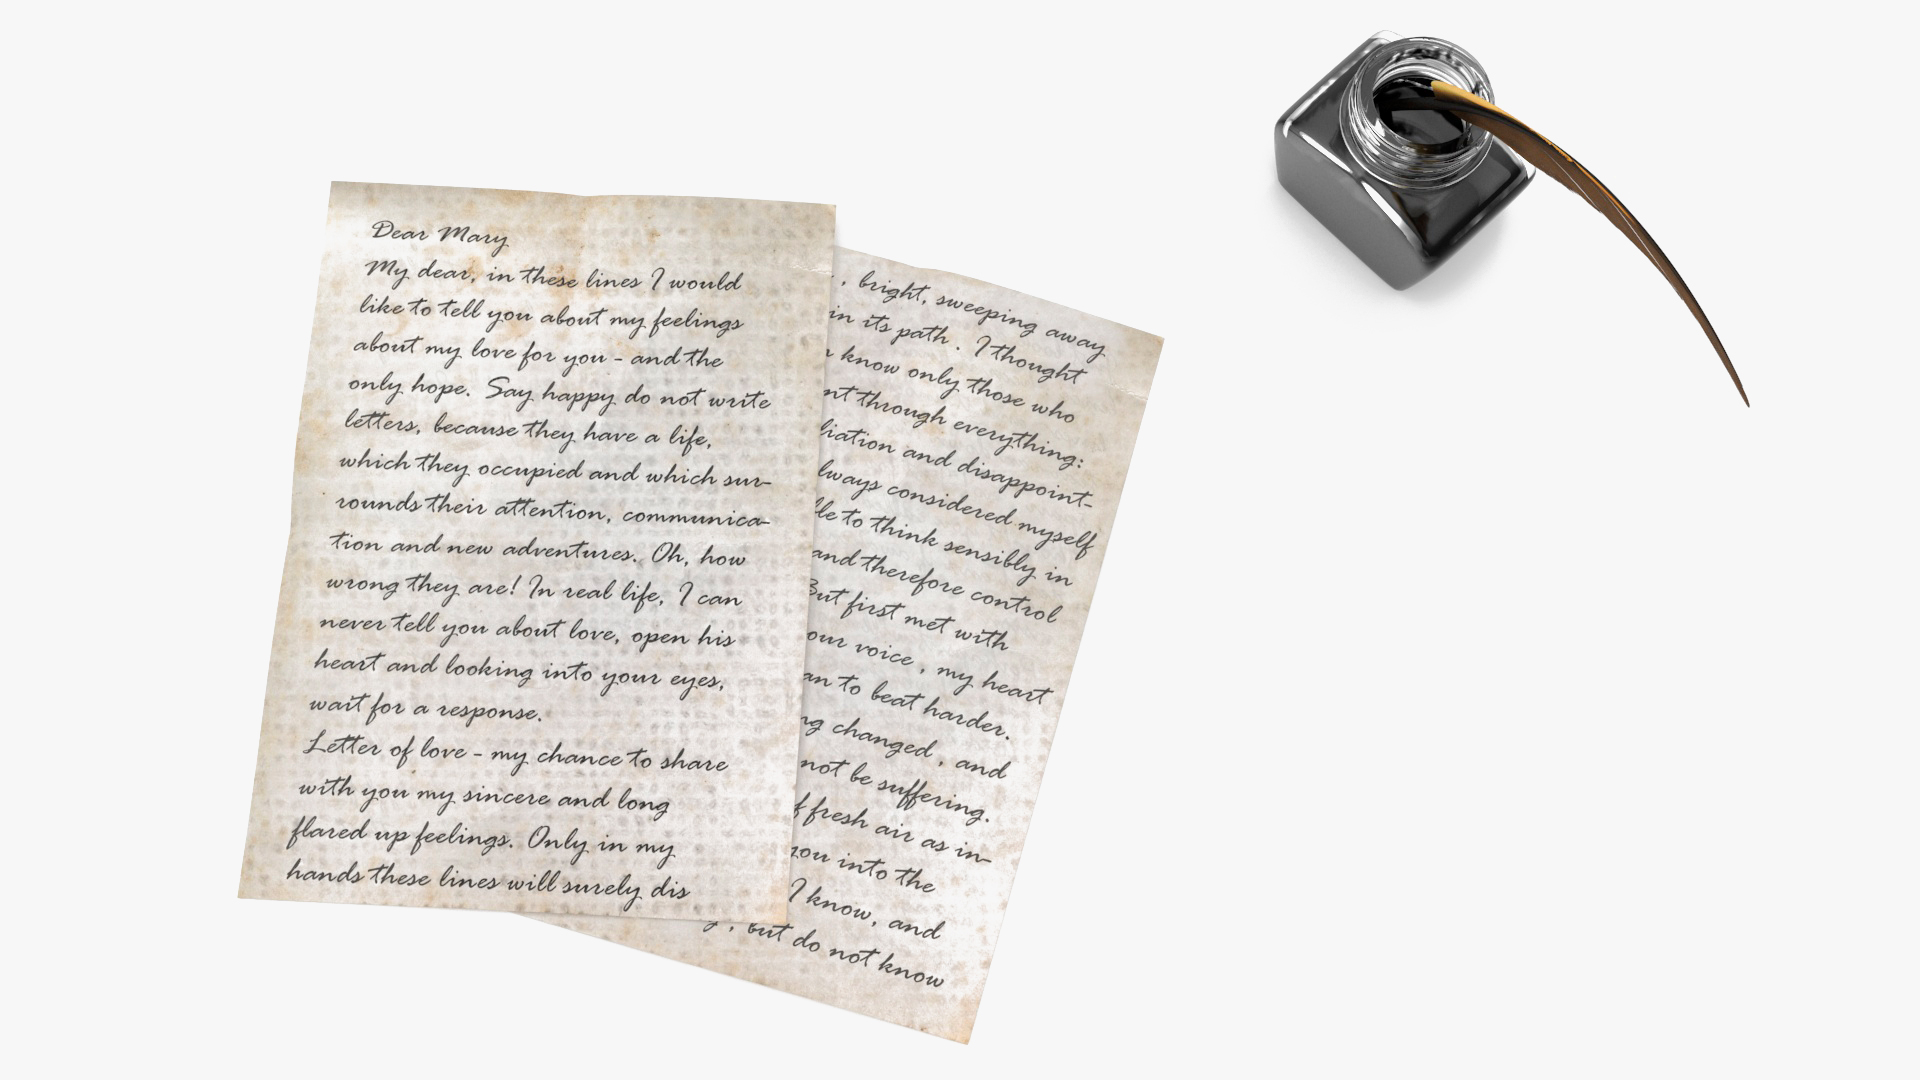 Dear Mary
My dear, in these lines I would
like to tell you about my feelings
about my love for you - and the
only hope. Say happy do not write
letters, because they have a life,
which they occupied and which sur-
rounds their attention, communica-
tion and new adventures. Oh, how
wrong they are! In real life, I can
never tell you about love, open his
heart and looking into your eyes,
wait for a response.
Letter of love - my chance to share
with you my sincere and long
flared up feelings. Only in my
hands these lines will surely dis
, bright, sweeping away
in its path . I thought
know only those who
through everything:
and disappoint-
considered myself
to think sensibly in
and therefore control
But first met with
our voice , my heart
to beat harder.
changed , and
not be suffering.
fresh air as in-
you into the
I know, and
, but do not know